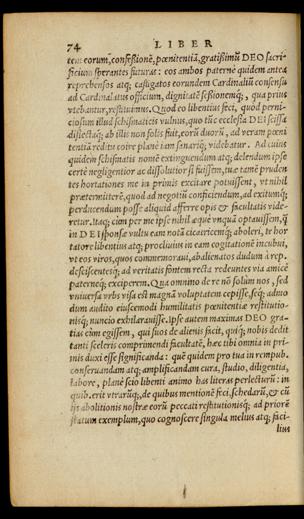 74 LIBER
tem eorum, confeſsionē, pœnitentiā, gratiſsimū DEO ſacri-
ficium ſperantes futuras: eos ambos paternè quidem antea
reprehenſos atq; caſtigatos eorundem Cardinaliū conſenſu
ad Cardinalatus officium, dignitatē ſeſsionemq;, qua prius
vtebantur, reſtituimus. Quod eo libentius feci, quòd perni-
cioſum illud ſchiſmaticis vulnus, quo tūc eccleſia DEI ſciſſa
diſtractaq; ab illis non ſolis fuit, eorū duorū, ad veram pœni
tentiā reditu coire planè iam ſanariq; videbatur. Ad cuius
quidem ſchiſmatis nomē extinguendum atq; delendum ipſe
certè negligentior ac diſſolutior ſi fuiſſem, tuæ tamē pruden
tes hortationes me in primis excitare potuiſſent, vt nihil
prætermitterē, quod ad negotiū conficiendum, ad exitumq;
perducendum poſſe aliquid afferre opis & facultatis vide-
retur. Itaq; cùm per me ipſe nihil æquè vnquā optauiſſem, q̄
in DEI ſponſæ vultu eam notā cicatricemq; aboleri, te hor
tatore libentius atq; procliuius in eam cogitationē incubui,
vt eos viros, quos commemoraui, abalienatos dudum à rep.
deſciſcentesq; ad veritatis fontem recta redeuntes via amicè
paternèq; exciperem. Qua omnino de re nō ſolùm nos, ſed
vniuerſa vrbs viſa eſt magnā voluptatem cepiſſe, ſeq; admo
dum audito eiuſcemodi humilitatis pœnitentiæ reſtitutio-
nisq; nuncio exhilarauiſſe. Ipſe autem maximas DEO gra-
tias cùm egiſſem, qui ſuos de alienis facit, quiq; nobis dedit
tanti ſceleris comprimendi facultatē, hæc tibi omnia in pri-
mis duxi eſſe ſignificanda: quē quidem pro tua in rempub.
conſeruandam atq; amplificandam cura, ſtudio, diligentia,
labore, planè ſcio libenti animo has literas perlecturū: in
quib. erit vtrarūq;, de quibus mentionē feci, ſchedarū, & cū
iis abolitionis noſtræ eorū peccati reſtitutionisq; ad priorē
ſtatum exemplum, quo cognoſcere ſingula melius atq; faci-
lius